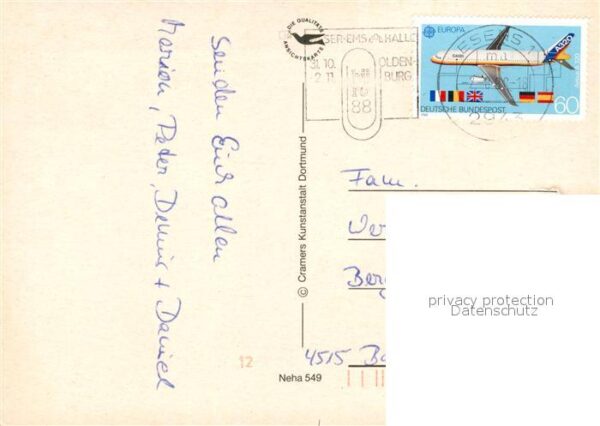 senden Euch allen
Marion, Peter, Dennis + Daniel
DIE QUALITÄTS
ANSICHTSKARTE
SER-EMS HALLE
31.10.
2.11.
OLDEN-
BURG
88
EUROPA
A320
ESENS 1
DEUTSCHE BUNDESPOST
60
© Cramers Kunstanstalt Dortmund
Fam.
4515 Ba
12
Neha 549
privacy protection
Datenschutz